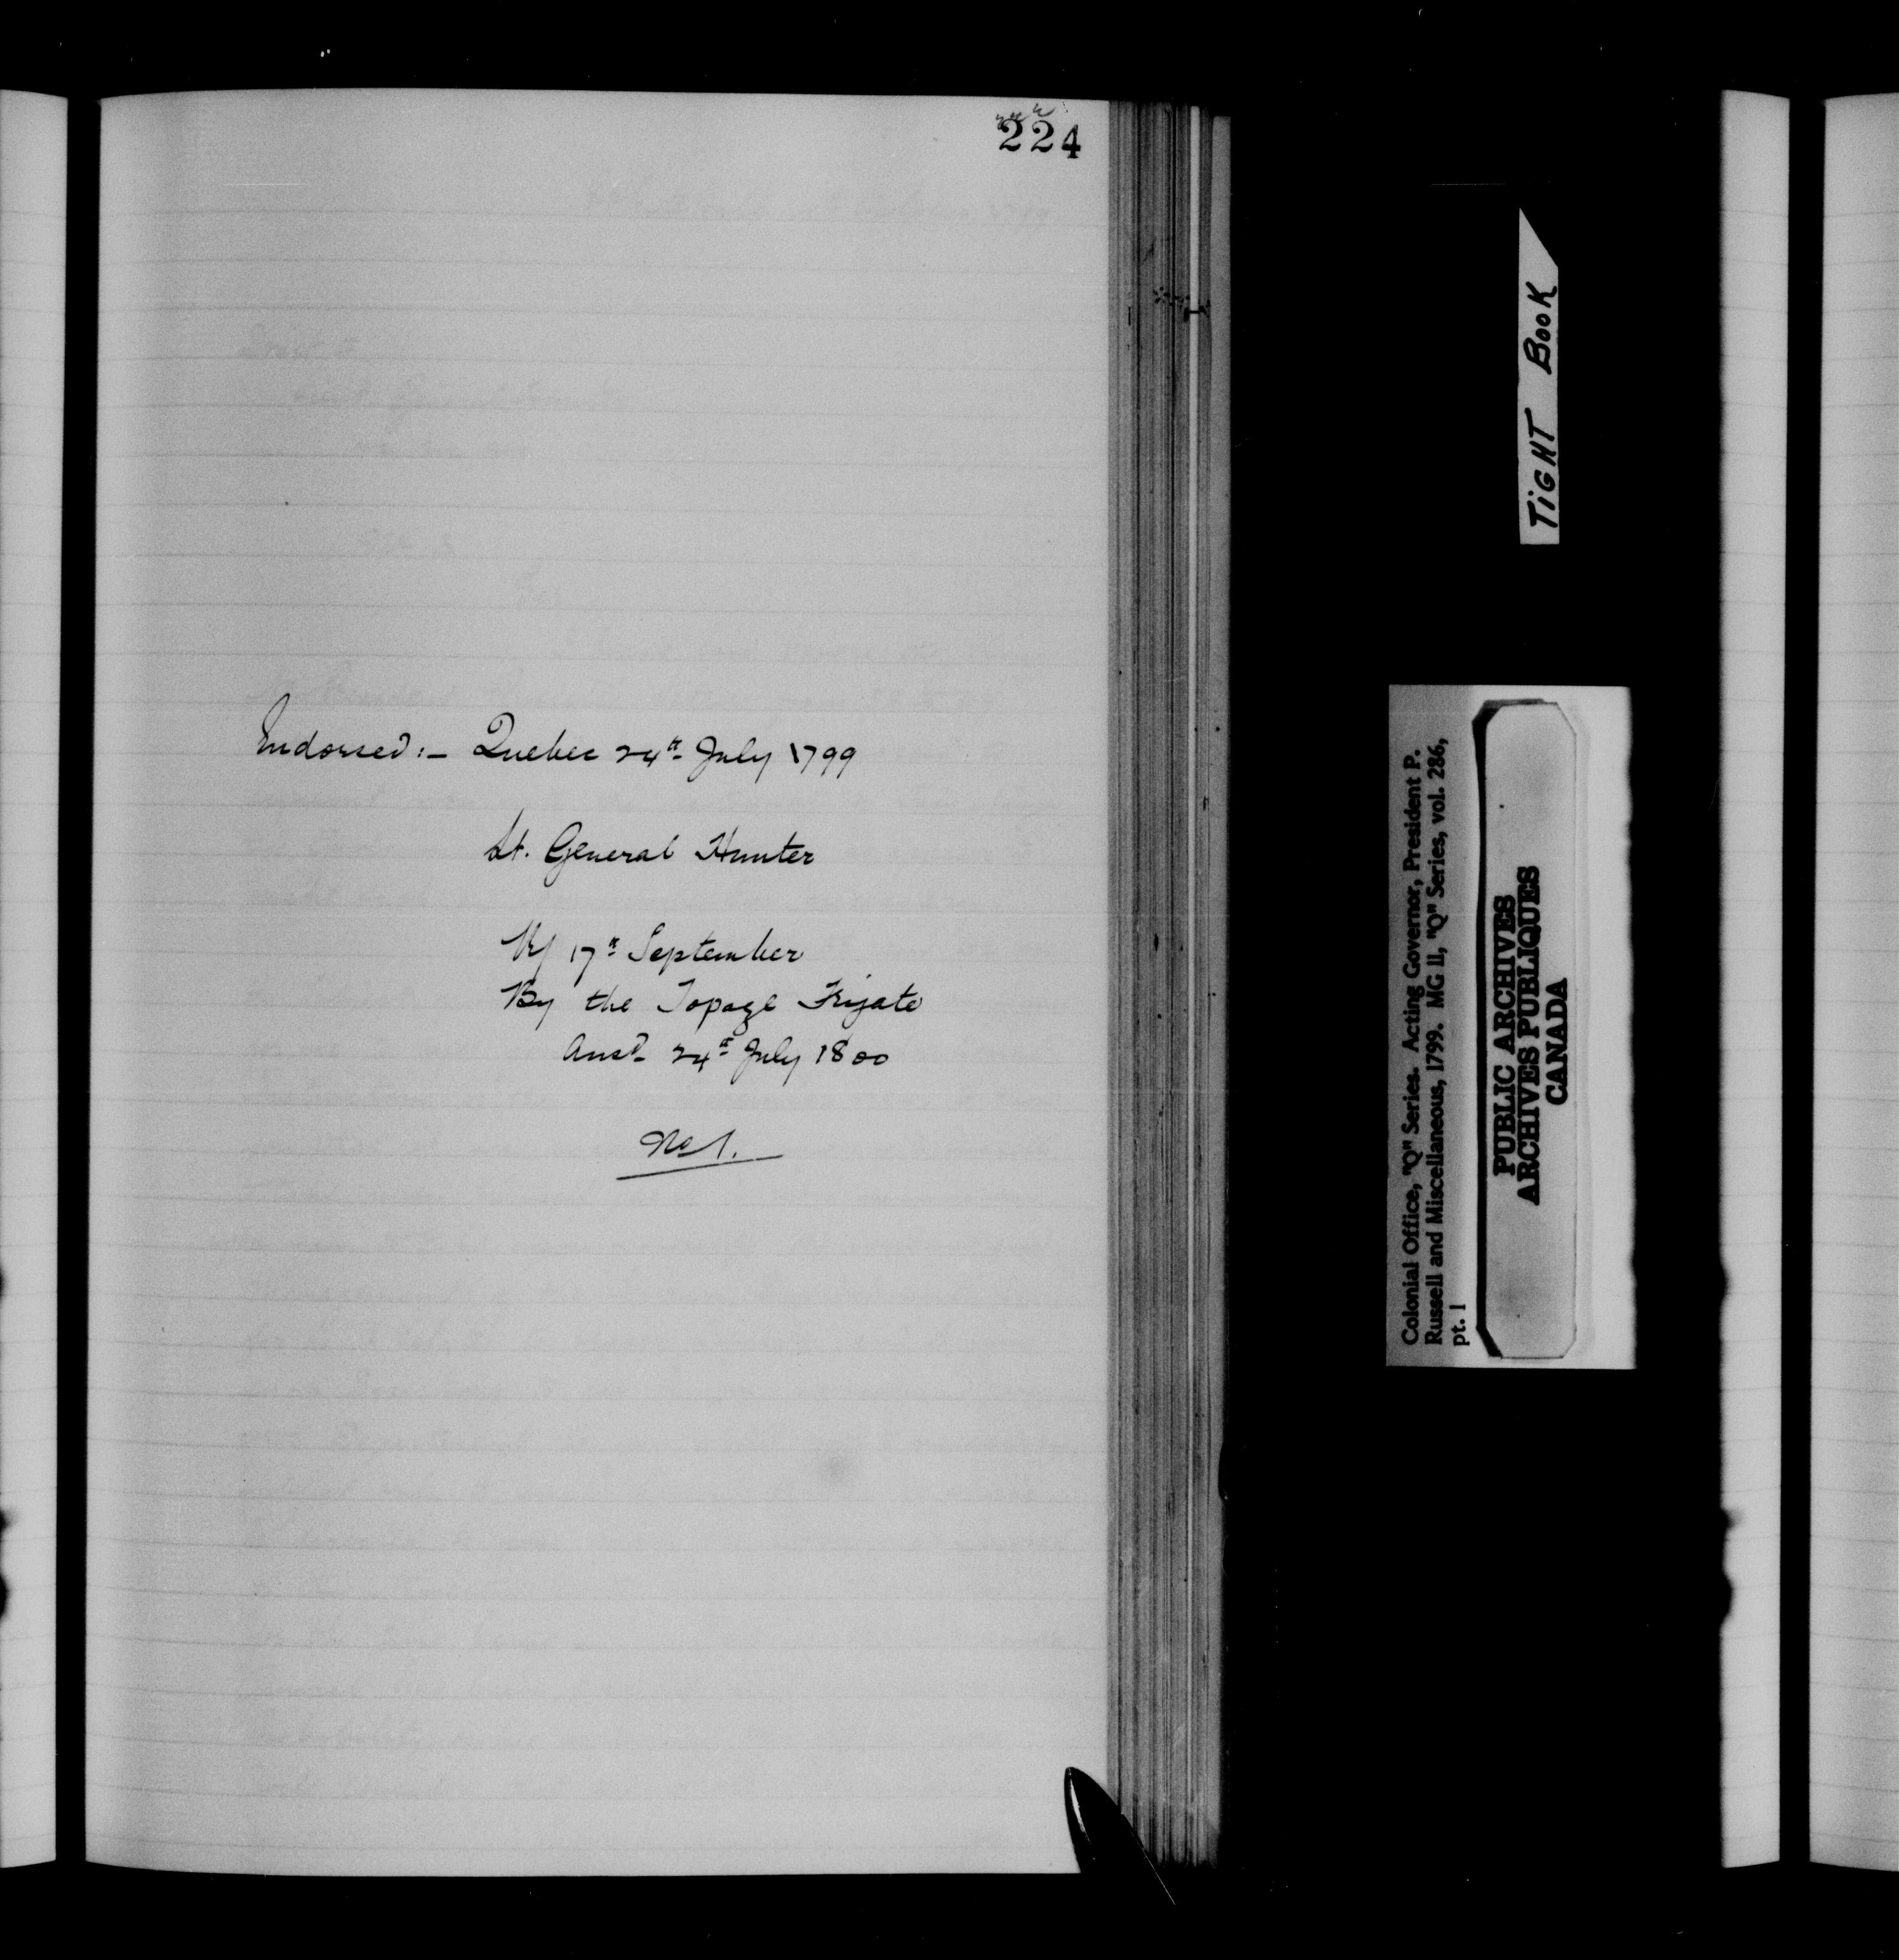 224
Endorsed:- Quebec 24th July 1799
Lt. General Hunter
R/ 17th September
By the Topaze Frigate
Ansd 24th July 1800
No 1.
TIGHT BOOK
Colonial Office, "Q" Series. Acting Governor, President P.
Russell and Miscellaneous, 1799. MG 11, "Q" Series, vol. 286,
pt. 1
PUBLIC ARCHIVES
ARCHIVES PUBLIQUES
CANADA